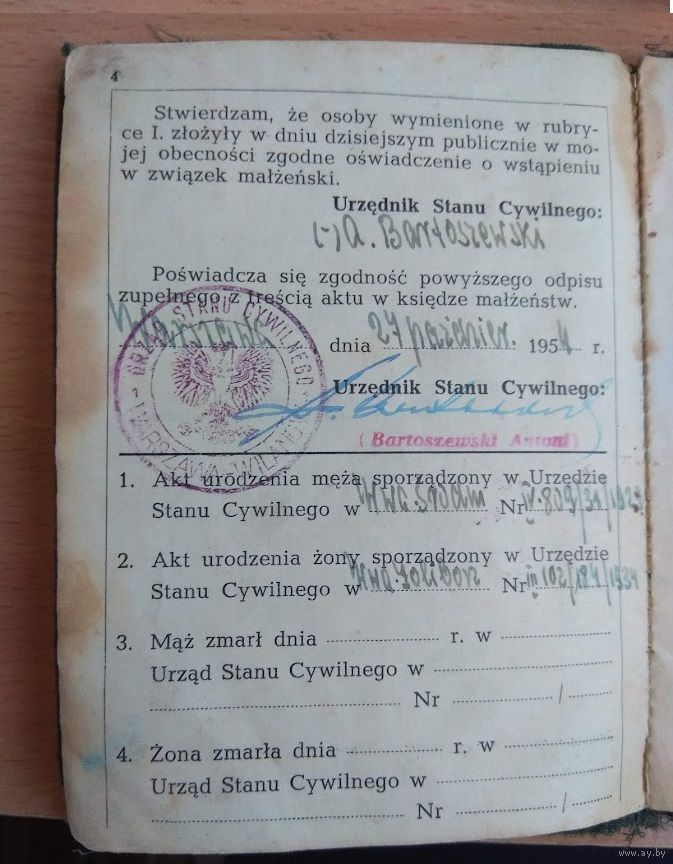 4
Stwierdzam, że osoby wymienione w rubry-
ce I. złożyły w dniu dzisiejszym publicznie w mo-
jej obecności zgodne oświadczenie o wstąpieniu
w związek małżeński.
Urzędnik Stanu Cywilnego:
(-) A. Bartoszewski
Poświadcza się zgodność powyższego odpisu
zupełnego z treścią aktu w księdze małżeństw.
Warszawa dnia 27 paździer. 1954 r.
URZĄD STANU CYWILNEGO
WARSZAWA-WILANÓW
Urzędnik Stanu Cywilnego:
(Bartoszewski Antoni)
1. Akt urodzenia męża sporządzony w Urzędzie
Stanu Cywilnego w Nr IV 809/31/
2. Akt urodzenia żony sporządzony w Urzędzie
Stanu Cywilnego w Nr III 102/184/1934
3. Mąż zmarł dnia r. w
Urząd Stanu Cywilnego w
Nr /
4. Żona zmarła dnia r. w
Urząd Stanu Cywilnego w
Nr /
www.ay.by